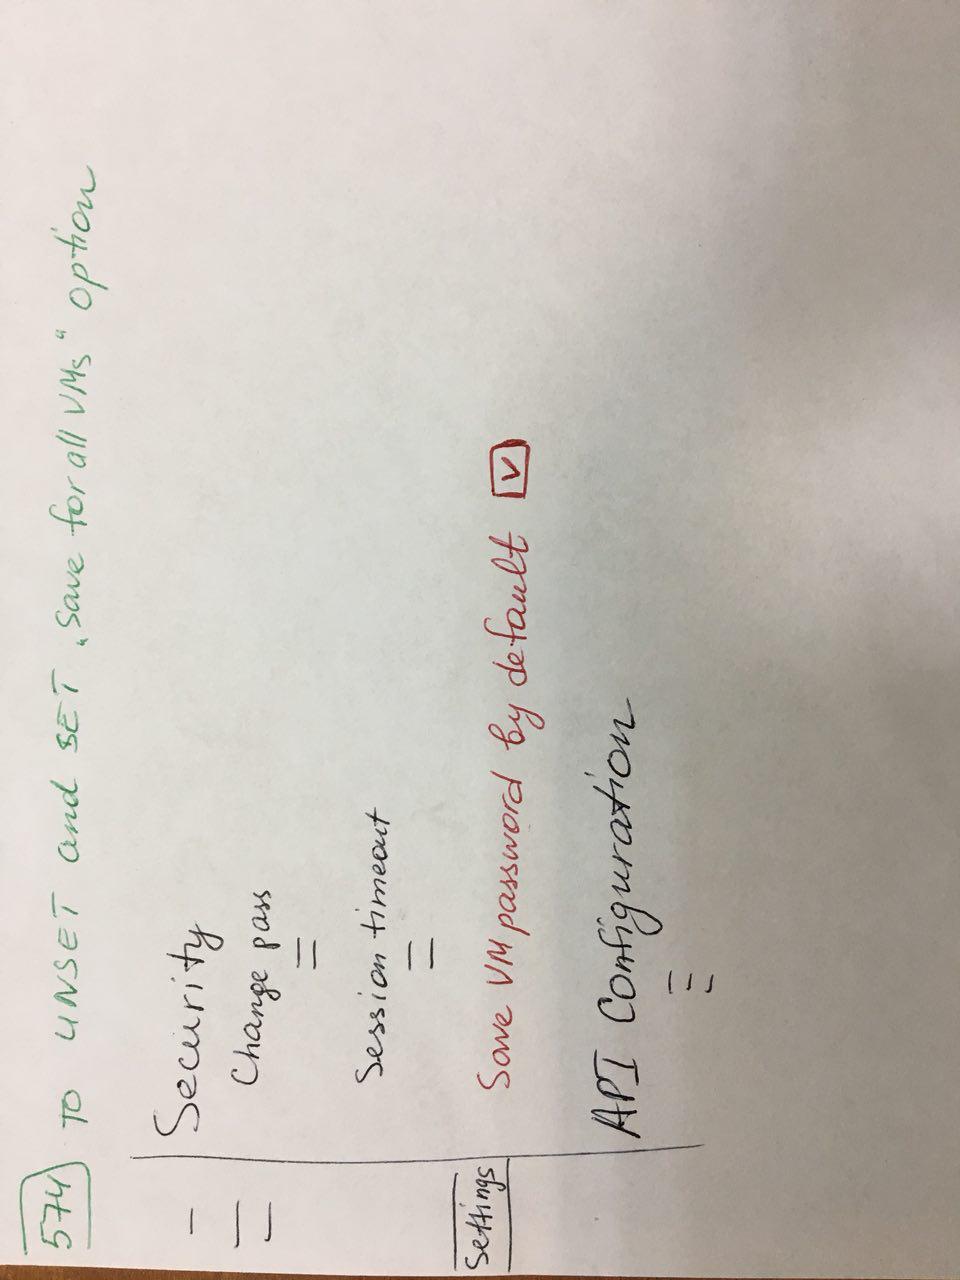 574 TO UNSET and SET „Save for all VMs“ option
Security
Change pass
Session timeout
Settings
Save VM password by default V
API Configuration